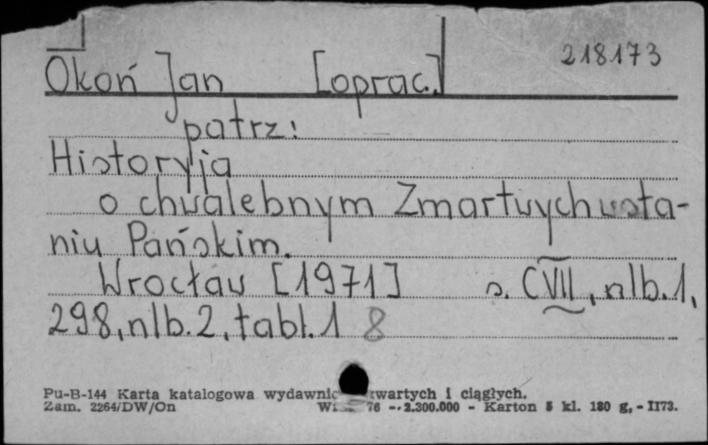 218173
Okoń Jan [oprac.]
patrz:
Historyja
o chwalebnym Zmartwychwsta-
niu Pańskim.
Wrocław [1971] s. CVII, nlb.1,
298, nlb.2, tabl.1 8
Pu-B-144 Karta katalogowa wydawnic wartych i ciągłych.
Zam. 2264/DW/On 76 - 2.300.000 - Karton 5 kl. 180 g, - II73.